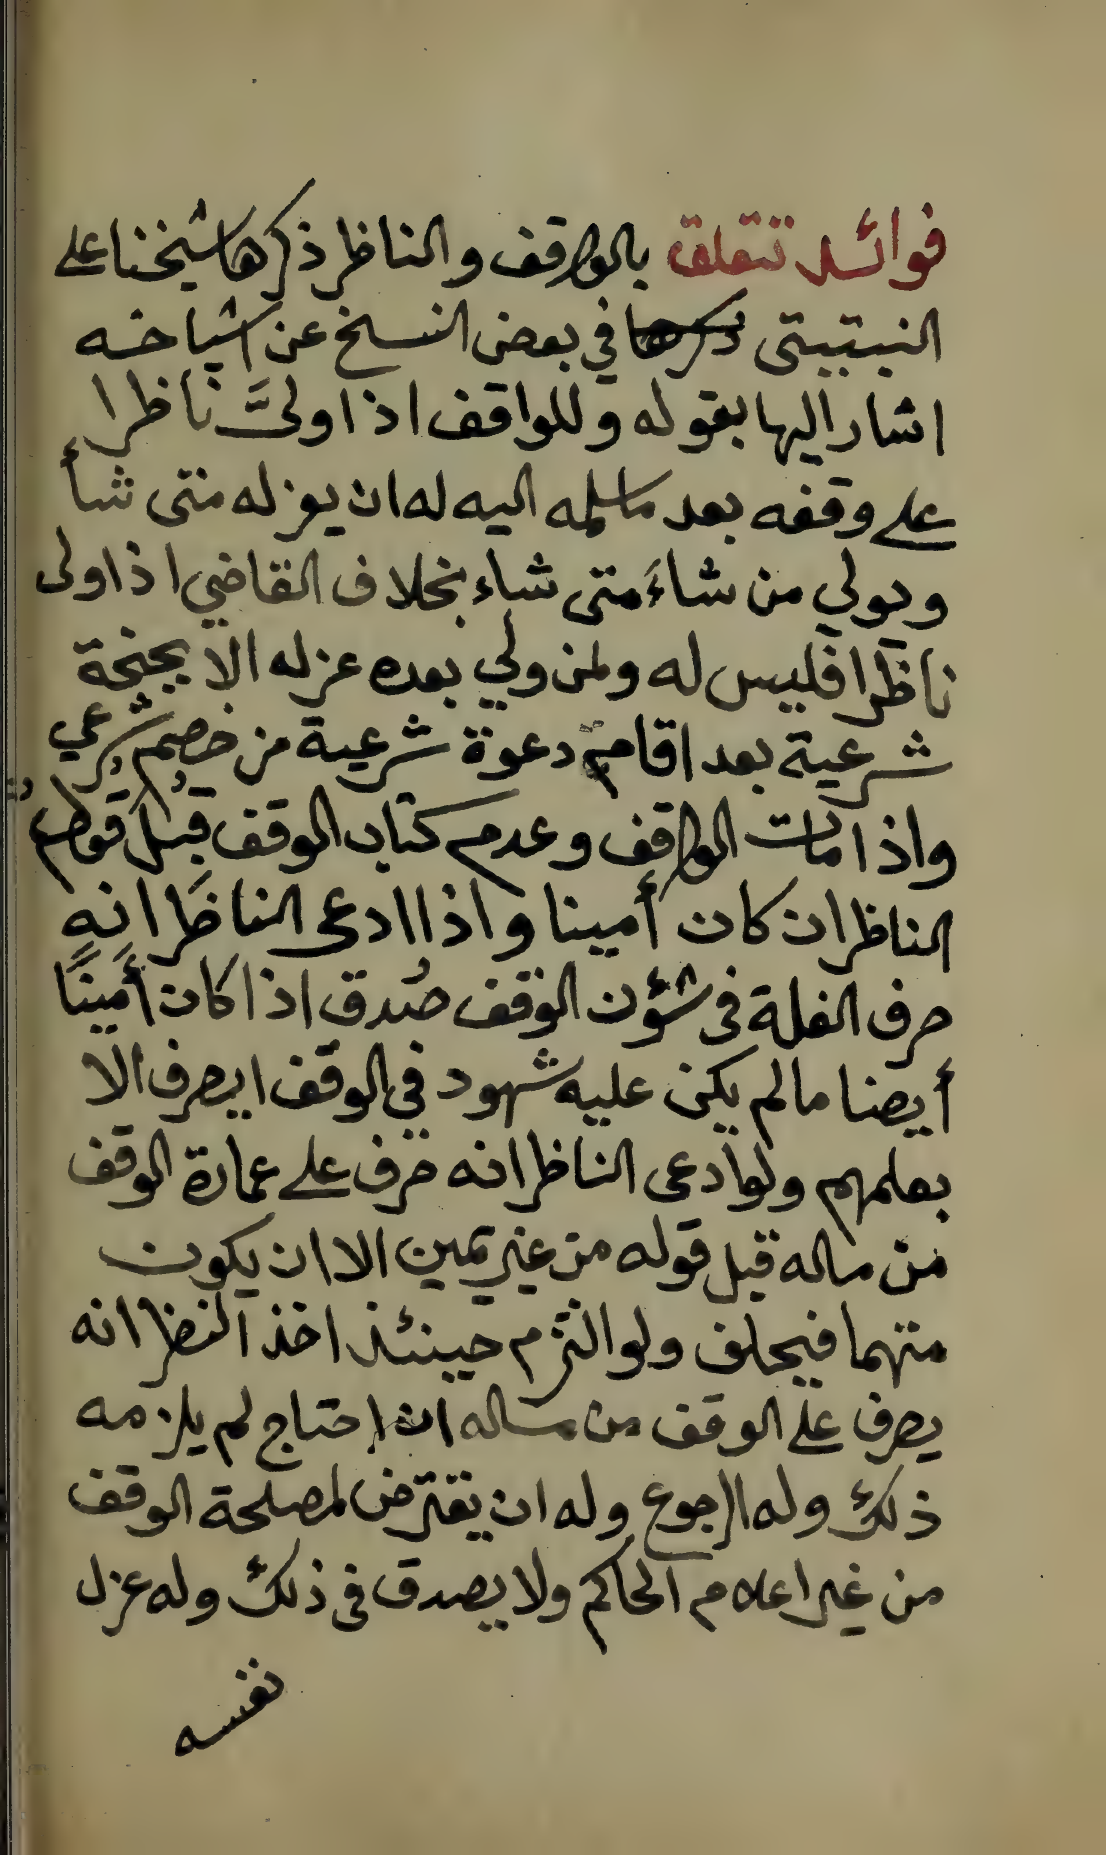 فوائد تتعلق بالواقف والناظر ذكرها شيخنا على
النبتيتى ذكرها في بعض النسخ عن اشياخه
اشار اليها بقوله وللواقف اذا ولىَّ ناظرا
على وقفه بعد ماسلمه اليه له ان يعزله متى شأ
ويولي من شاءَ متى شاء بخلاف القاضي اذا ولى
ناظرا فليس له ولمن ولي بعده عزله الا بجنحة
شرعية بعد اقامة دعوة شرعية من خصم شرعي
واذا مات الواقف وعدم كتاب الوقف قُبل قول
الناظر ان كان أمينا واذا ادعى الناظر انه
صرف الغلة فى شؤن الوقف صُدق اذا كان أمينًا
أيضا مالم يكن عليه شهود في الوقف ايصرف الا
بعلمهم ولو ادعى الناظر انه صرف على عمارة الوقف
من ماله قبل قوله من غير يمين الا ان يكون
متهما فيحلف ولو التزم حينئذ اخذ النظر انه
يصرف على الوقف من ماله ان احتاج لم يلزمه
ذلك وله الرجوع وله ان يقترض لمصلحة الوقف
من غير اعلام الحاكم ولا يصدق فى ذلك وله عزل
نفسه